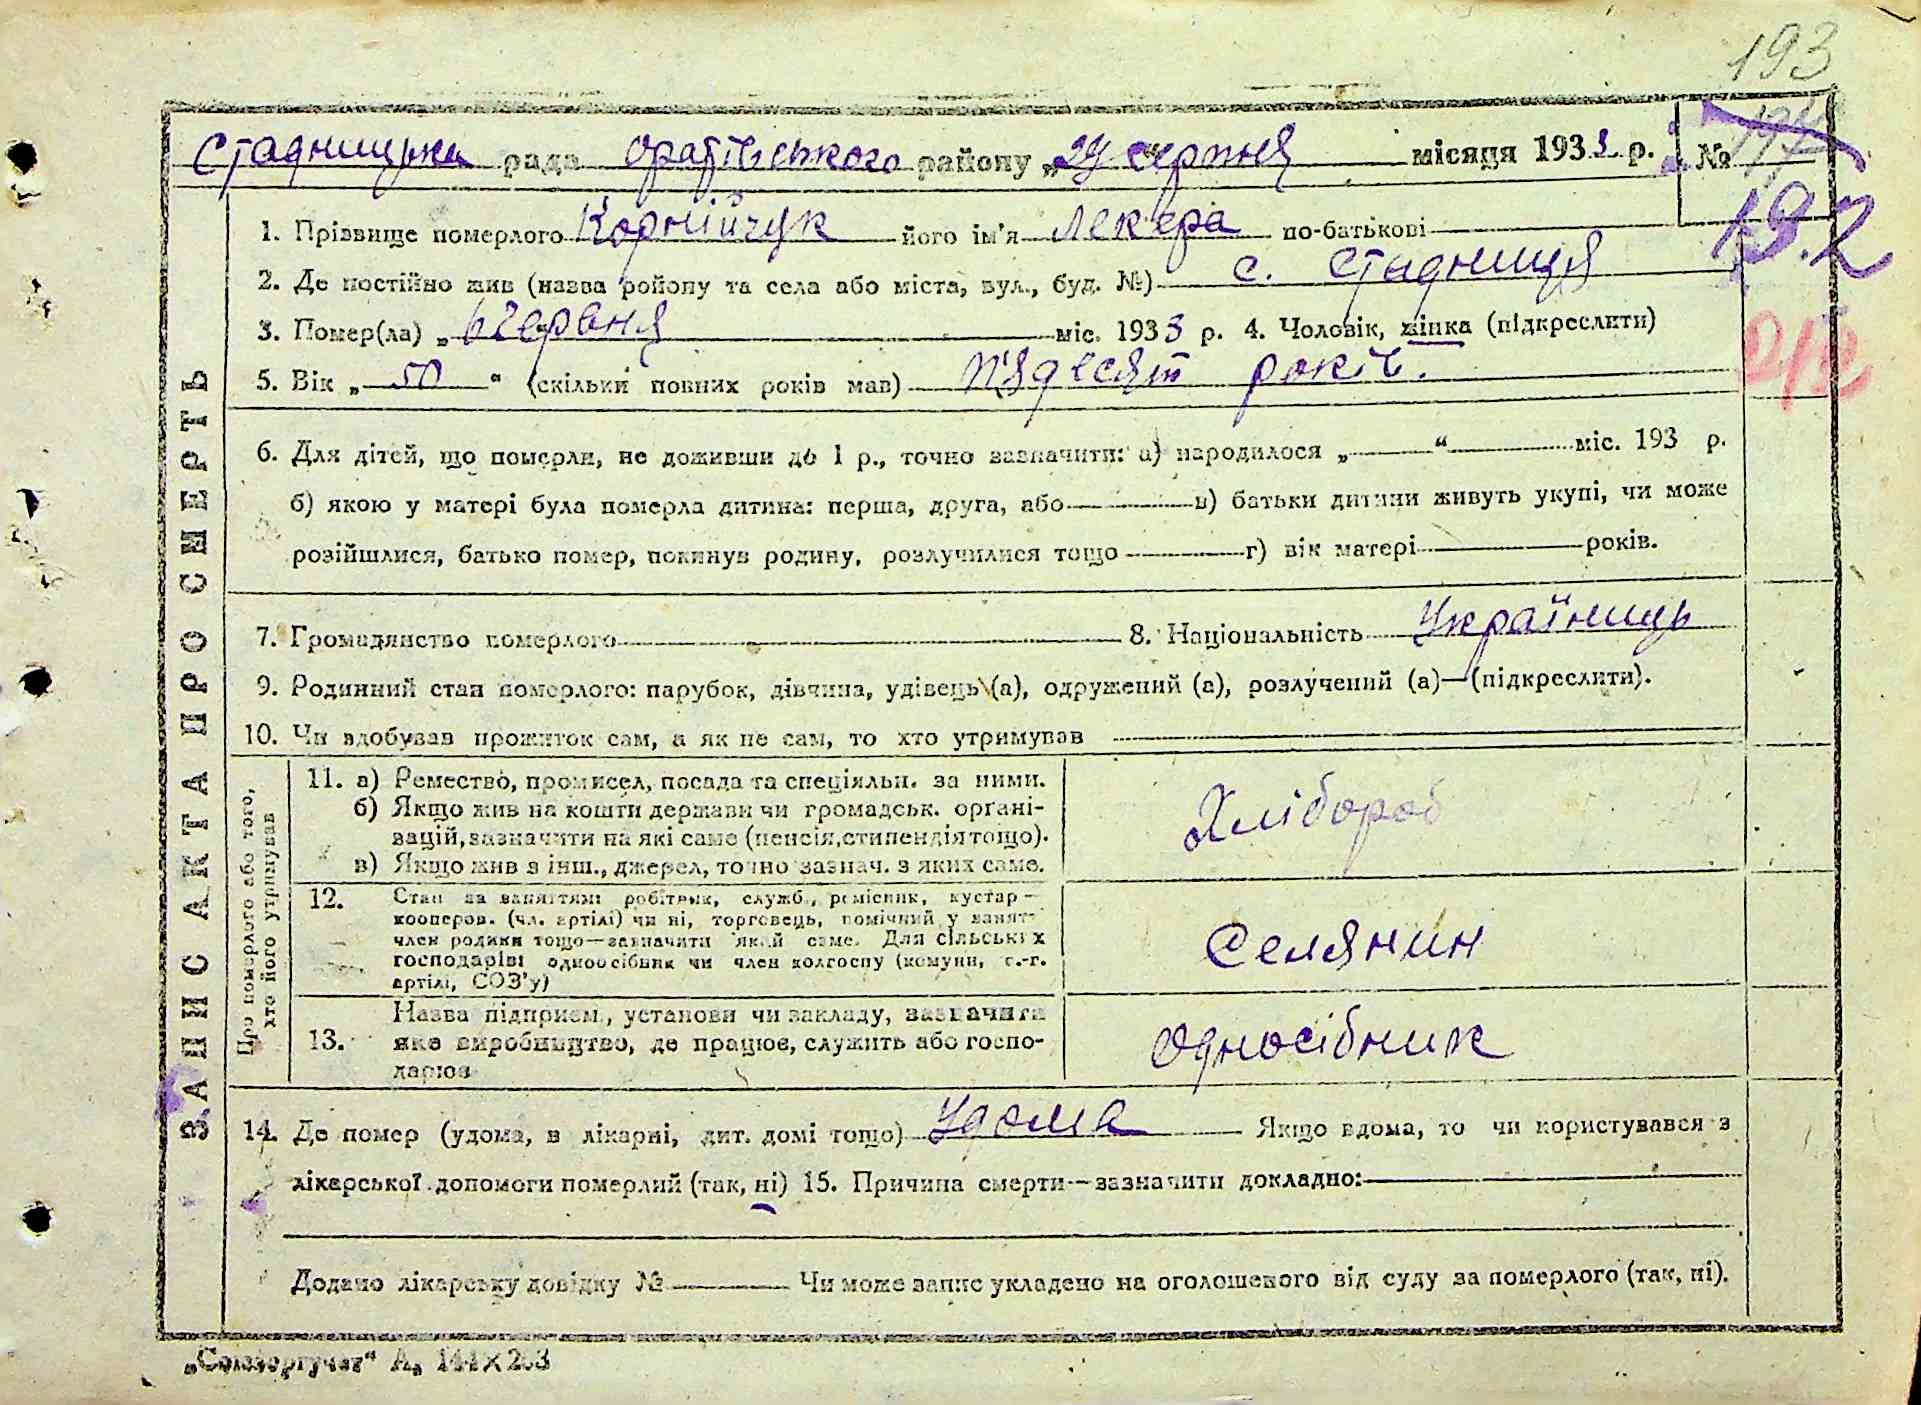 193
Стадницька рада Оратівського району „29 серпня місяця 1933 р. №
192
1. Прізвище померлого Корнійчук його ім'я Лекера по-батькові
2. Де постійно жив (назва ройону та села або міста, вул., буд. №) с. Стадниця
3. Помер(ла) „6 червня міс. 1933 р. 4. Чоловік, жінка (підкреслити)
5. Вік „ 50 “ (скільки повних років мав) п'ядесят років.
6. Для дітей, що померли, не доживши до 1 р., точно зазначити: а) народилося „ “ міс. 193 р.
б) якою у матері була померла дитина: перша, друга, або в) батьки дитини живуть укупі, чи може
розійшлися, батько помер, покинув родину, розлучилися тощо г) вік матері років.
7. Громадянство померлого 8. Національність Україниць
9. Родинний стан померлого: парубок, дівчина, удівець (а), одружений (а), розлучений (а)—(підкреслити).
10. Чи здобував прожиток сам, а як не сам, то хто утримував
ЗАПИС АКТА ПРО СМЕРТЬ
Про померлого або того, хто його утримував
11. а) Ремество, промисел, посада та спеціяльн. за ними.
б) Якщо жив на кошти держави чи громадськ. орґані-
зацій, зазначити на які саме (пенсія, стипендія тощо).
в) Якщо жив з інш., джерел, точно зазнач. з яких саме.
Хлібороб
12. Стан за заняттям: робітник, служб., ремісник, кустар—
кооперов. (чл. артілі) чи ні, торговець, помічний у занят-
член родини тощо—зазначити який саме. Для сільських
господарів: одноосібник чи член колгоспу (комуни, с.-г.
артілі, СОЗ'у)
Селянин
13. Назва підприєм., установи чи закладу, зазначити
яке виробництво, де працює, служить або госпо-
дарює
Односібник
14. Де помер (удома, в лікарні, дит. домі тощо) Удома Якщо вдома, то чи користувався з
лікарської допомоги померлий (так, ні) 15. Причина смерти—зазначити докладно:
Додано лікарську довідку № Чи може запис укладено на оголошеного від суду за померлого (так, ні).
„Союзоргучет“ А, 144×203